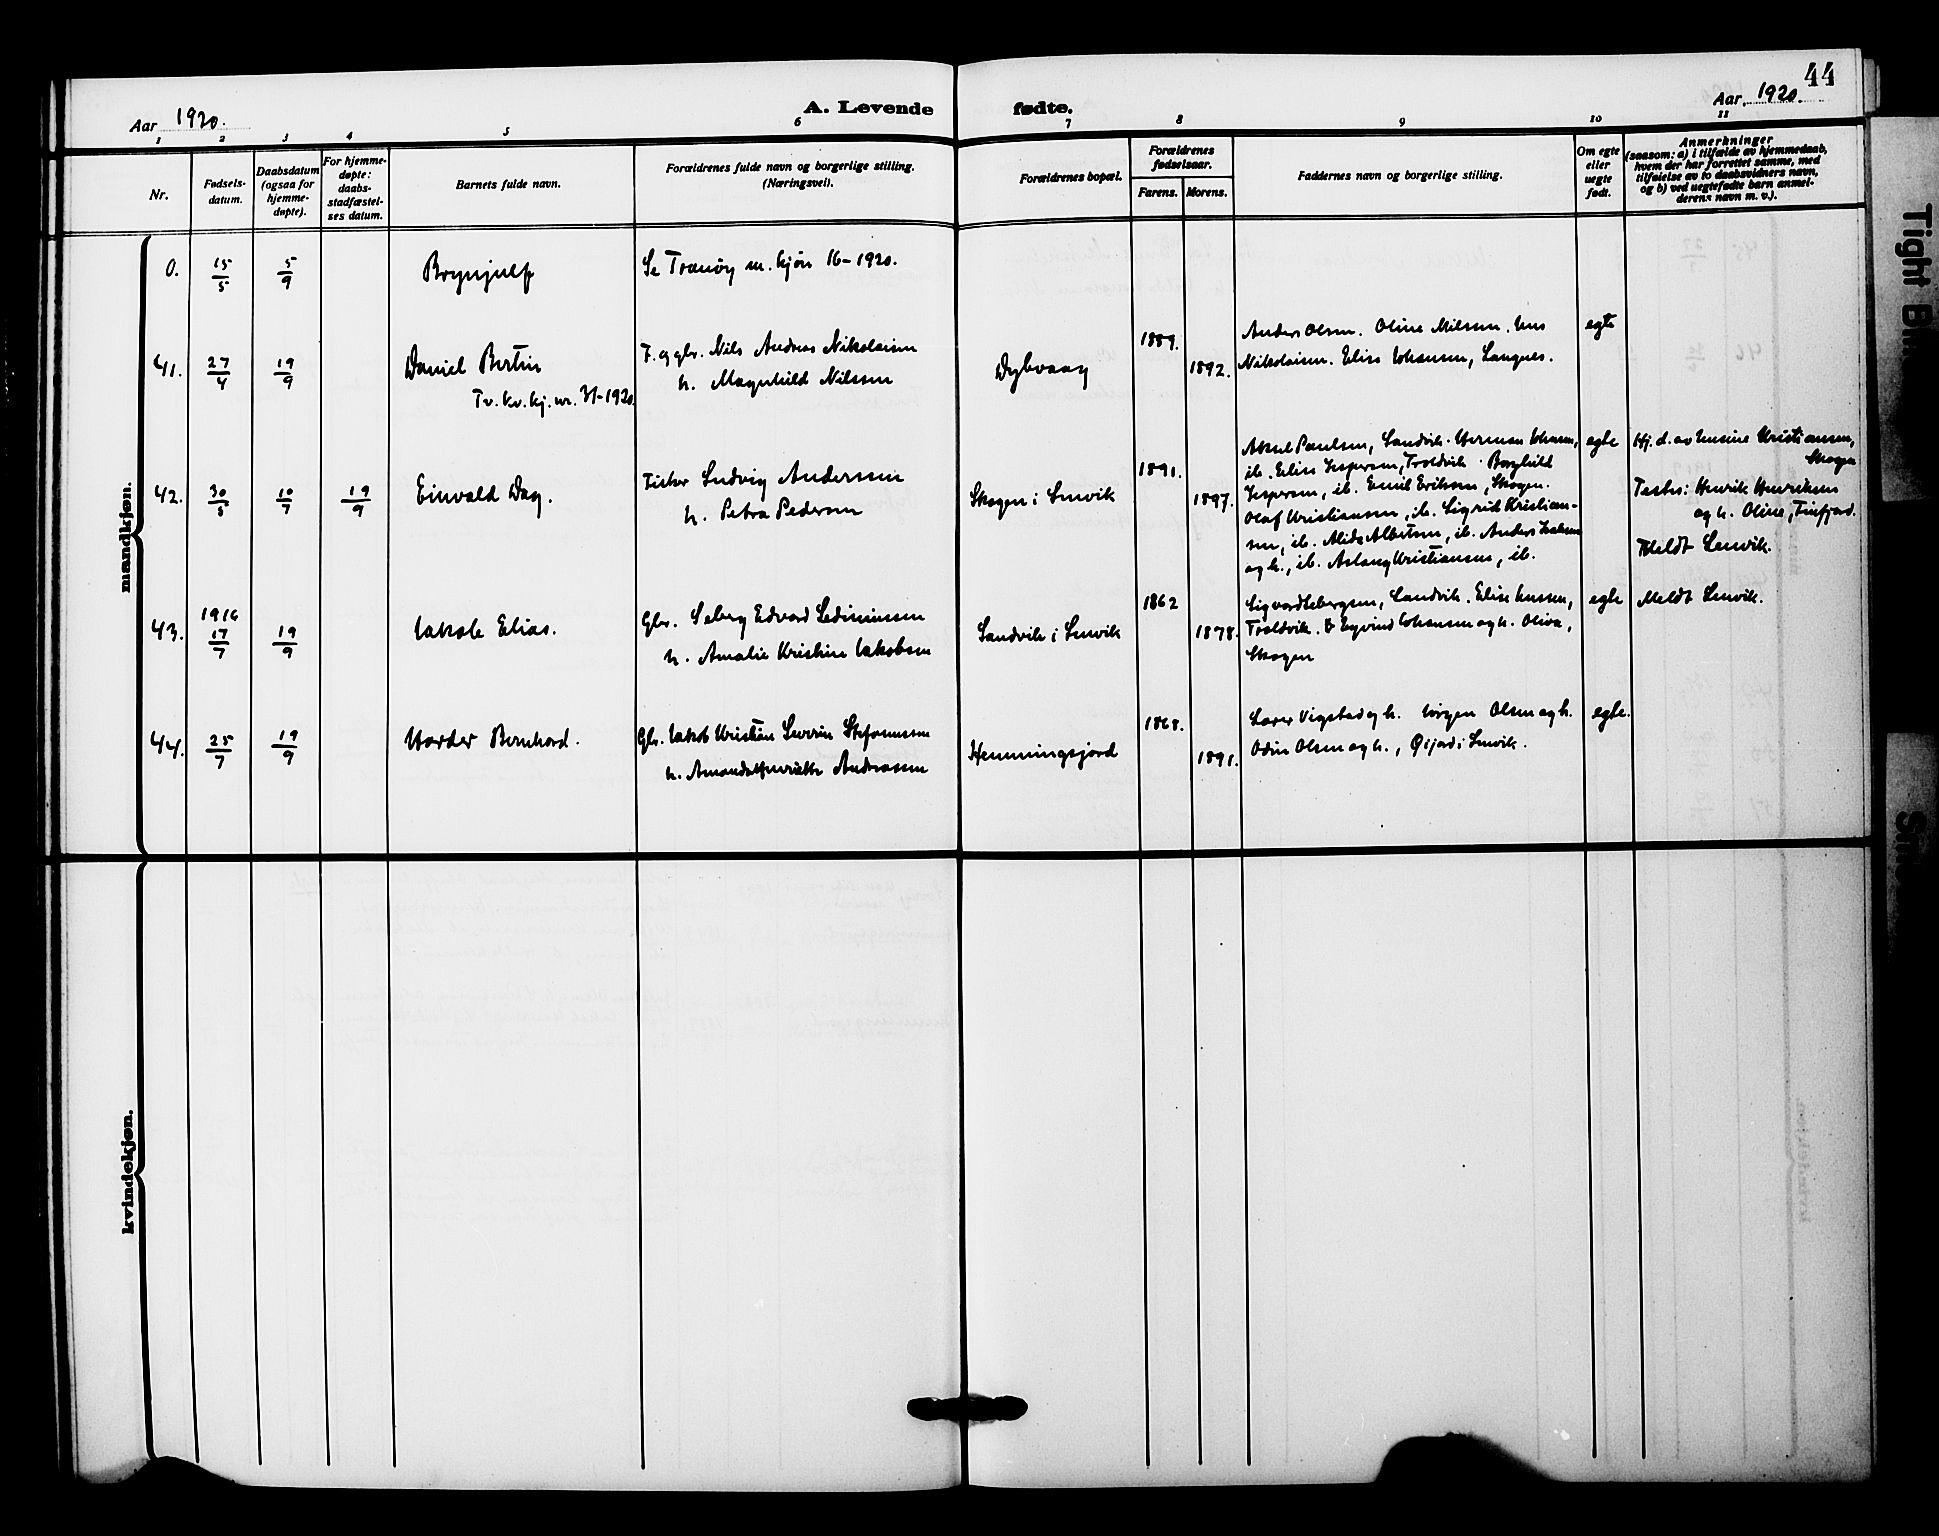 44
Aar 1920.
A. Levende
fødte.
Aar 1920.
1 2 3 4 5 6 7 8 9 10 11
Nr.
Fødsels-
datum.
Daabsdatum
(ogsaa for
hjemme-
døpte).
For hjemme-
døpte:
daabs-
stadfæstel-
ses datum.
Barnets fulde navn.
Forældrenes fulde navn og borgerlige stilling.
(Næringsvei).
Forældrenes bopæl.
Forældrenes
fødselsaar.
Farens. Morens.
Faddernes navn og borgerlige stilling.
Om egte
eller
uegte
født.
Anmerkninger
(saasom: a) i tilfælde av hjemmedaab,
hvem der har forrettet samme, med
tilføielse av to daabsvidners navn,
og b) ved uegtefødte barn anmel-
derens navn m. v.).
mandkjøn.
0. 15/5 5/9 Brynjulf Se Tranøy m. kjøn 16-1920.
41. 27/4 19/9 Daniel Bertin
Tv. kv. kj. nr. 31-1920.
F. og gbr. Nils Andreas Nikolaisen
h. Magnhild Nilssen
Dybvaag
1889. 1892.
Anders Olsen. Oline Nilssen. Jens
Nikolaisen. Elise Johansen, Langnes.
egte
42. 30/5 10/7 19/9 Einvald Dag.
Fisker Ludvig Anderssen
h. Petra Pedersen
Skogen i Lenvik
1891. 1897.
Aksel Paulsen, Sandvik. Herman Johansen,
ib. Elise Jespersen, Troldvik. Borghild
Jespersen, ib. Emil Eriksen, Skogen.
Olaf Kristiansen, ib. Sigrid Kristian-
sen, ib. Alida Albertsen, ib. Anders
og h., ib. Aslaug Kristiansen, ib.
egte
Hj. d. av Jensine Kristiansen,
Skogen
Testes: Henrik Henriksen
og h. Oline, Finfjord.
Meldt Lenvik.
43. 1916 17/7 19/9 Jakob Elias.
Gbr. Seberg Edvard Sediniussen
h. Amalie Kristine Jakobsen
Sandvik i Lenvik
1862 1878.
Sigvard Sebergsen, Sandvik. Elise Jenssen,
Troldvik. Eyvind Johansen og h. Oliva,
Skogen
egte
Meldt Lenvik.
44. 25/7 19/9 Harder Bernhard.
Gbr. Jakob Kristian Severin Stefanussen
h. Amanda Henriette Andreassen
Hemmingsjord
1868. 1891.
Laver Vigstad og h. Jørgen Olsen og h.
Odin Olsen og h., Øijord i Lenvik.
egte.
kvindekjøn.